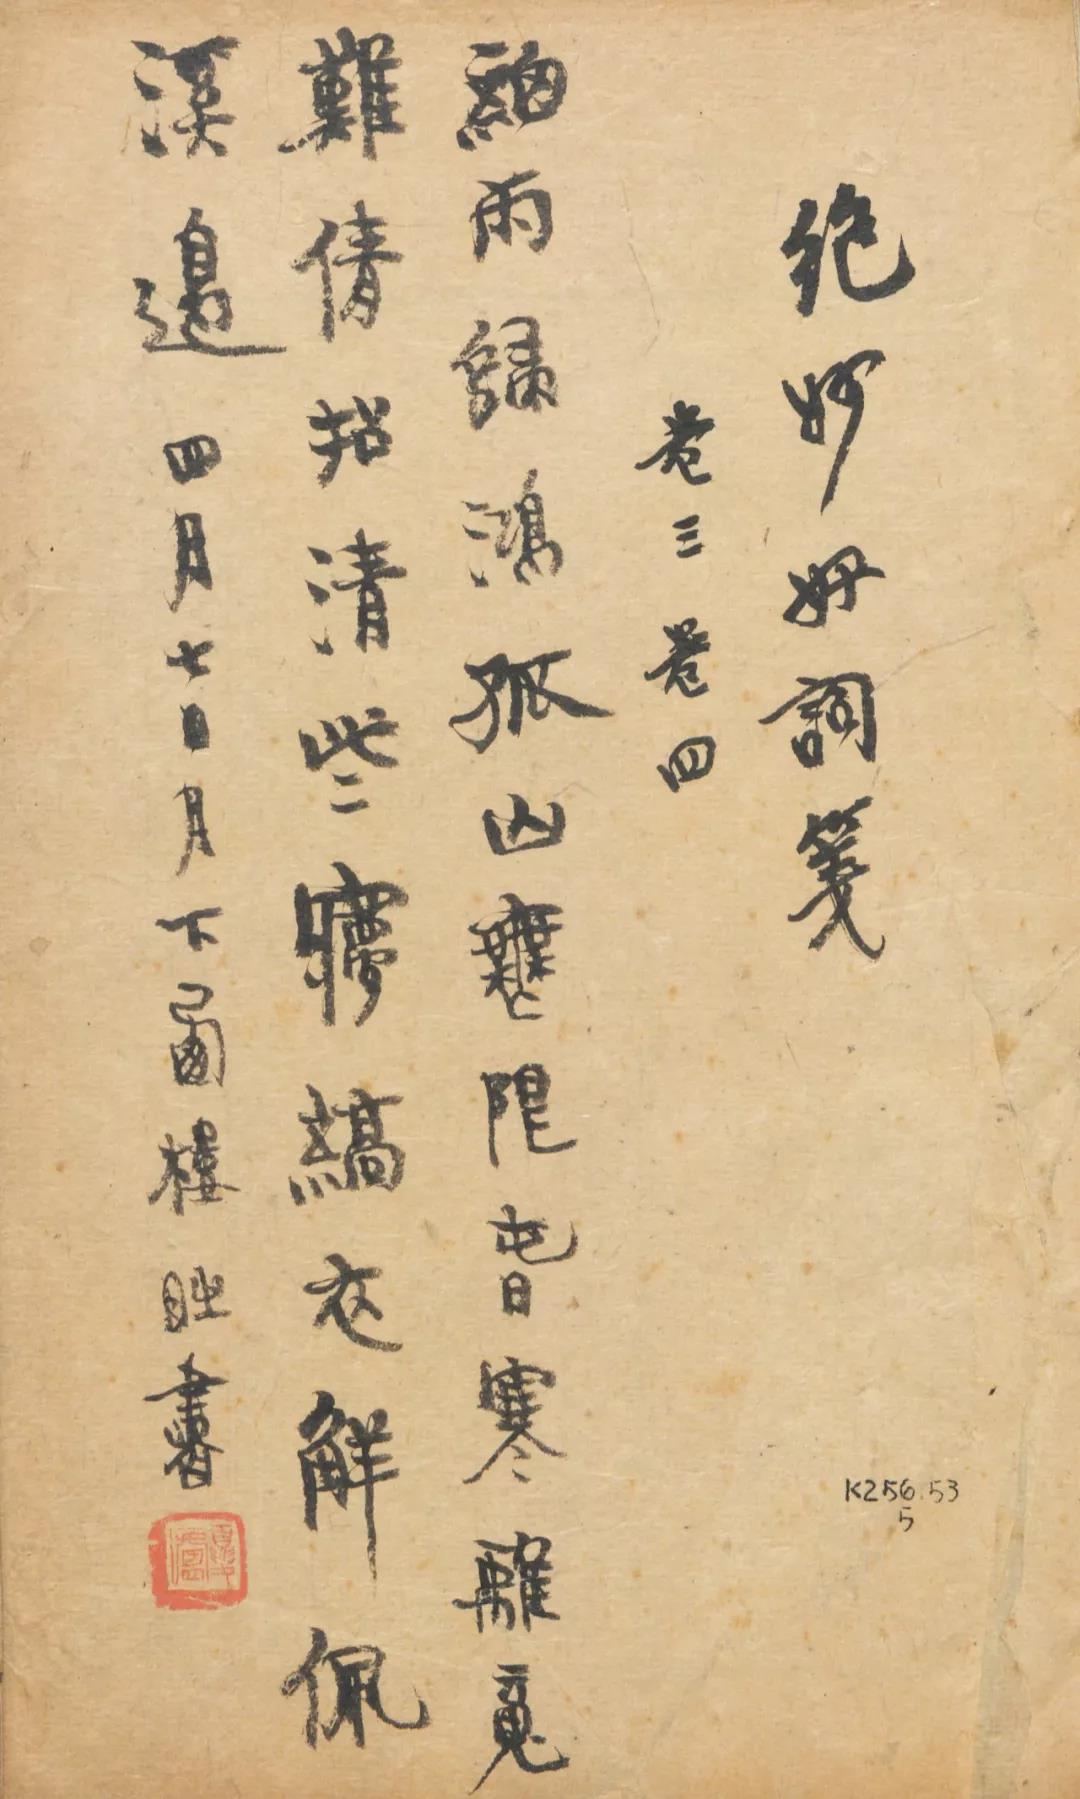 絶妙好詞箋
卷三卷四
細雨歸鴻孤山無限春寒離魂
難倩招清些夢縞衣解佩
溪邊 四月七日月下 樓 書
K256.53
5